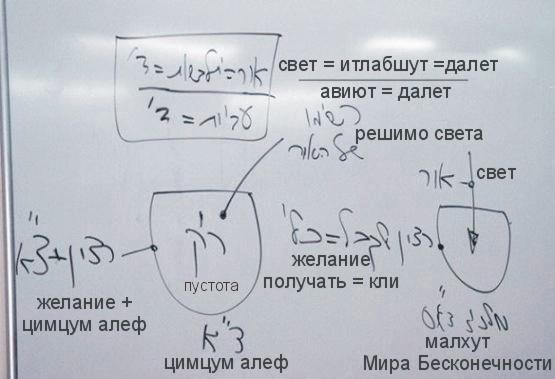 אור=התלבשות=ד'
свет = итлабшут =далет
עביות=ד'
авиют = далет
רשימו
של האור
решимо света
אור
свет
רצון+צ"א
желание +
цимцум алеф
ריק
пустота
רצון לקבל=כלי
желание
получать = кли
צ"א
цимцум алеф
малхут
Мира Бесконечности